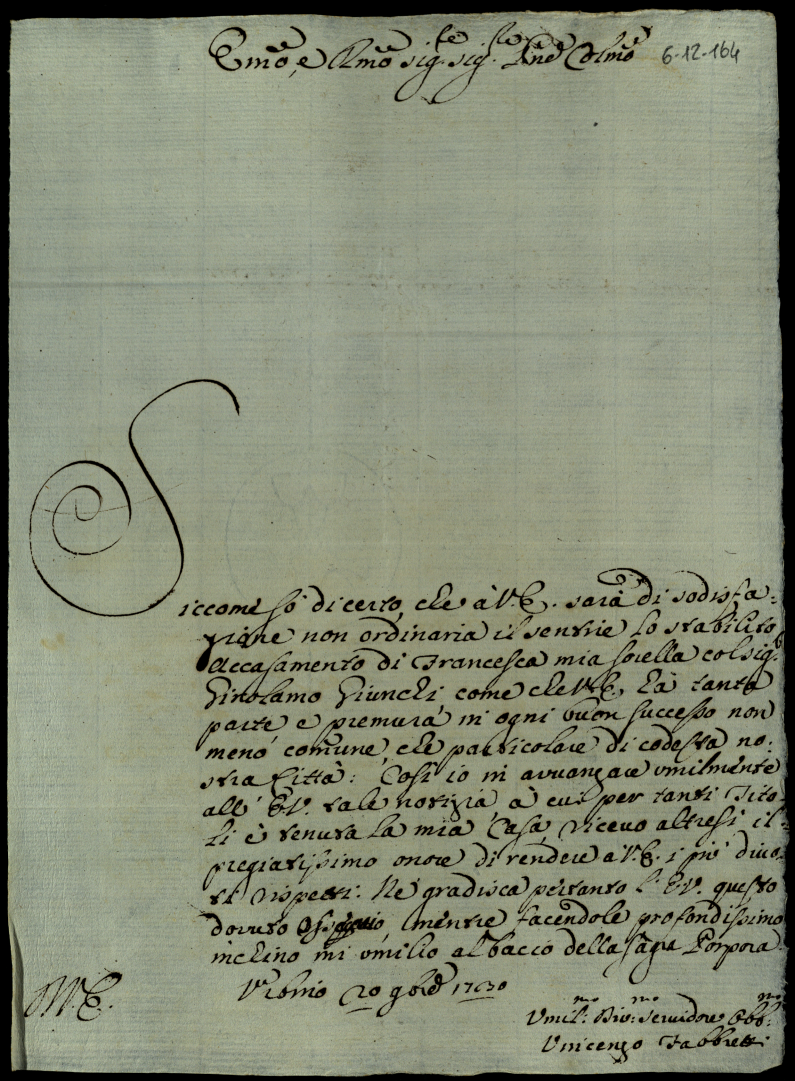 Emo, e Rmo Sig. Sig. Pne Colmo
6-12-164
Siccome so di certo, che à V. E. sarà di sodisfa-
zione non ordinaria il sentire lo stabilito
Accasamento di Francesca mia sorella col sig.
Girolamo Giunchi come che V. E. hà tanta
parte, e premura in ogni buon successo non
meno comune, che particolare di codesta no-
stra Città: Cosi io in avvanzare umilmente
all' E. V. tale notizia, à cui per tanti Tito-
li è tenuta la mia Casa, ricevo altresi il
pregiatissimo onore di rendere à V. E. i più divo-
ti rispetti. Ne gradisca pertanto l' E. V. questo
dovuto ossequio, mentre facendole profondissimo
inchino mi umilio al bacio della Sagra Porpora
Urbino 20 9bre 1730
V. E.
Umil.mo Div.mo Servidore Obb.mo
Vincenzo Fabbretti